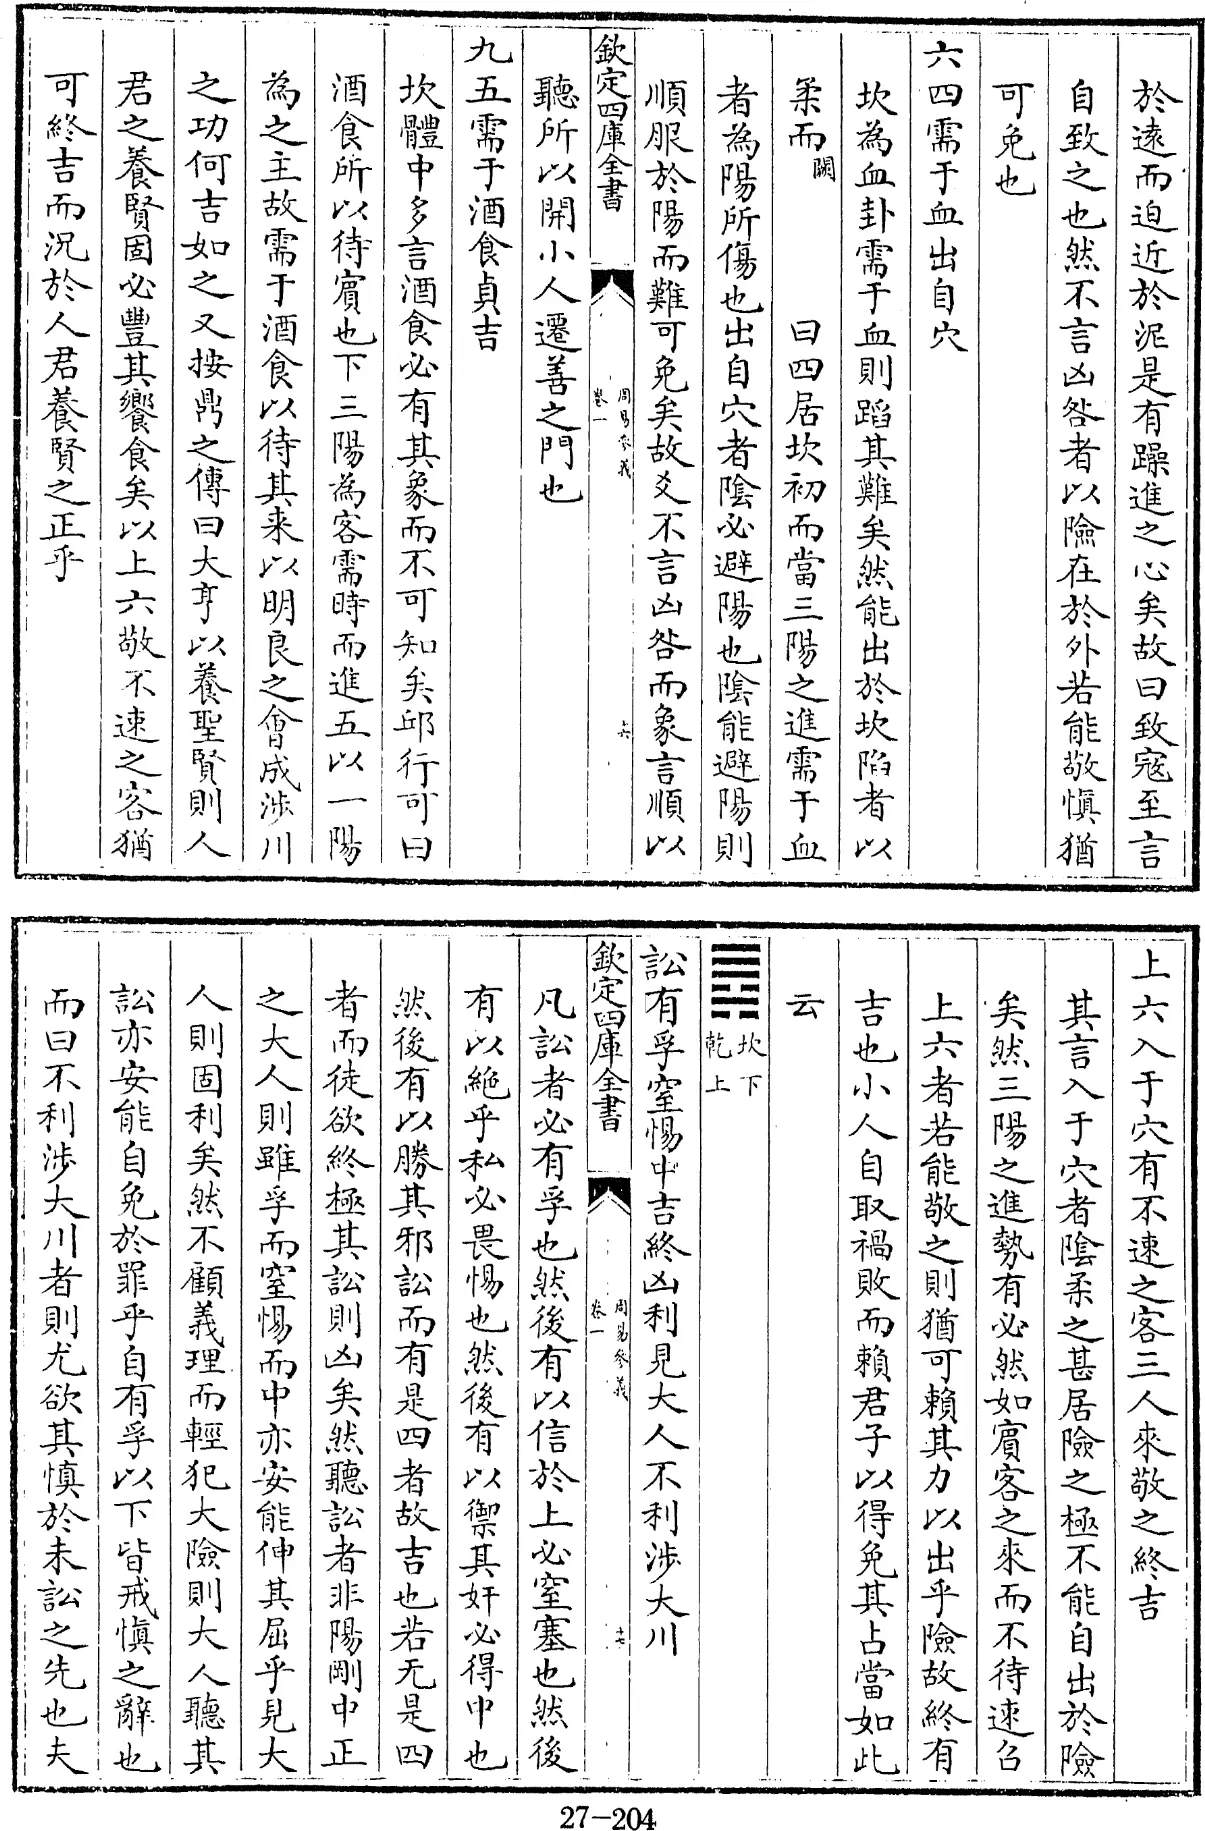 於遠而迫近於泥是有躁進之心矣故曰致寇至言
自致之也然不言凶咎者以險在於外若能敬慎猶
可免也
六四需于血出自穴
坎為血卦需于血則蹈其難矣然能出於坎陷者以
柔而闕曰四居坎初而當三陽之進需于血
者為陽所傷也出自穴者陰必避陽也陰能避陽則
順服於陽而難可免矣故爻不言凶咎而象言順以
欽定四庫全書
周易參義
卷一
六
聽所以開小人遷善之門也
九五需于酒食貞吉
坎體中多言酒食必有其象而不可知矣邱行可曰
酒食所以待賓也下三陽為客需時而進五以一陽
為之主故需于酒食以待其来以明良之會成涉川
之功何吉如之又按鼎之傳曰大亨以養聖賢則人
君之養賢固必豐其饗食矣以上六敬不速之客猶
可終吉而況於人君養賢之正乎
上六入于穴有不速之客三人來敬之終吉
其言入于穴者陰柔之甚居險之極不能自出於險
矣然三陽之進勢有必然如賓客之來而不待速召
上六者若能敬之則猶可賴其力以出乎險故終有
吉也小人自取禍敗而賴君子以得免其占當如此
云
坎下
乾上
訟有孚窒惕中吉終凶利見大人不利涉大川
欽定四庫全書
周易參義
卷一
十七
凡訟者必有孚也然後有以信於上必窒塞也然後
有以絶乎私必畏惕也然後有以禦其奸必得中也
然後有以勝其邪訟而有是四者故吉也若无是四
者而徒欲終極其訟則凶矣然聽訟者非陽剛中正
之大人則雖孚而窒惕而中亦安能伸其屈乎見大
人則固利矣然不顧義理而輕犯大險則大人聽其
訟亦安能自免於罪乎自有孚以下皆戒慎之辭也
而曰不利涉大川者則尤欲其慎於未訟之先也夫
27-204